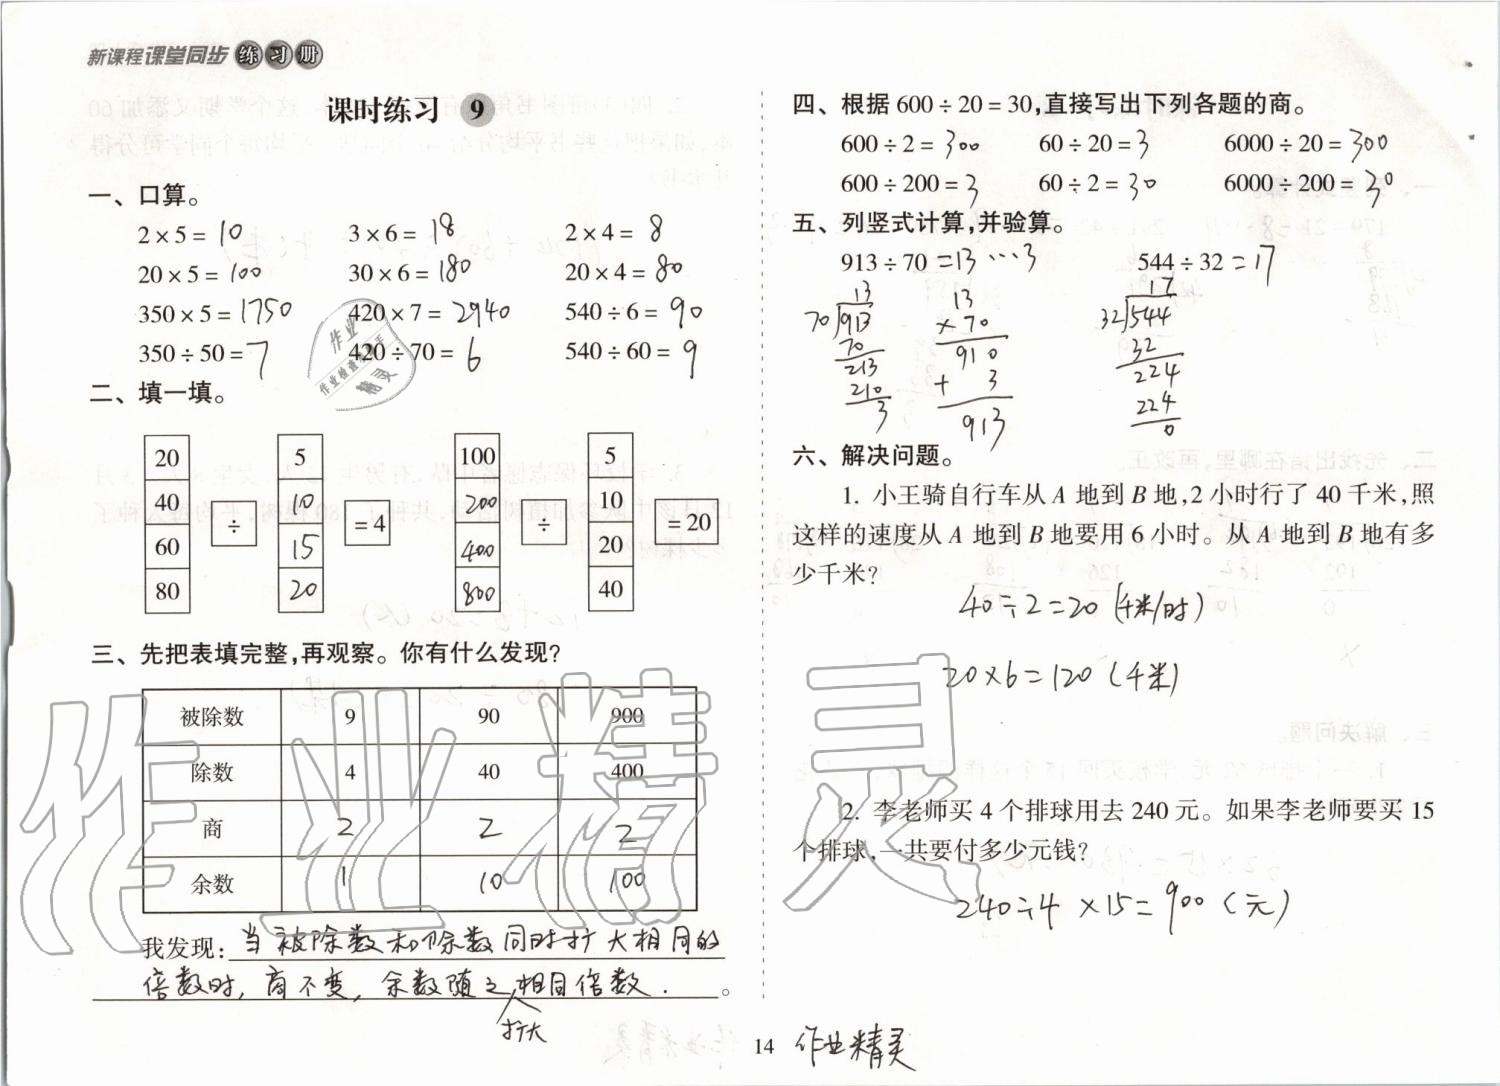 新课程课堂同步练习册
课时练习 9
一、口算。
2×5= 10 3×6= 18 2×4= 8
20×5= 100 30×6= 180 20×4= 80
350×5= 1750 420×7= 2940 540÷6= 90
350÷50= 7 420÷70= 6 540÷60= 9
二、填一填。
20 5 100 5
40 10 200 10
÷ =4 ÷ =20
60 15 400 20
80 20 800 40
三、先把表填完整,再观察。你有什么发现?
被除数 9 90 900
除数 4 40 400
商 2 2 2
余数 1 10 100
我发现: 当被除数和除数同时扩大相同的
倍数时, 商不变, 余数随之扩大相同倍数. 。
四、根据 600÷20=30,直接写出下列各题的商。
600÷2= 300 60÷20= 3 6000÷20= 300
600÷200= 3 60÷2= 30 6000÷200= 30
五、列竖式计算,并验算。
913÷70 =13 ···3 544÷32 =17
13 13 17
70 913 ×70 32 544
70 910 32
213 + 3 224
210 913 224
3 0
六、解决问题。
1. 小王骑自行车从 A 地到 B 地,2 小时行了 40 千米,照
这样的速度从 A 地到 B 地要用 6 小时。从 A 地到 B 地有多
少千米?
40÷2=20 (千米/时)
20×6=120 (千米)
2. 李老师买 4 个排球用去 240 元。如果李老师要买 15
个排球,一共要付多少元钱?
240÷4 ×15=900 (元)
14 作业精灵
作业精灵
作业
作业检查小帮手
精灵